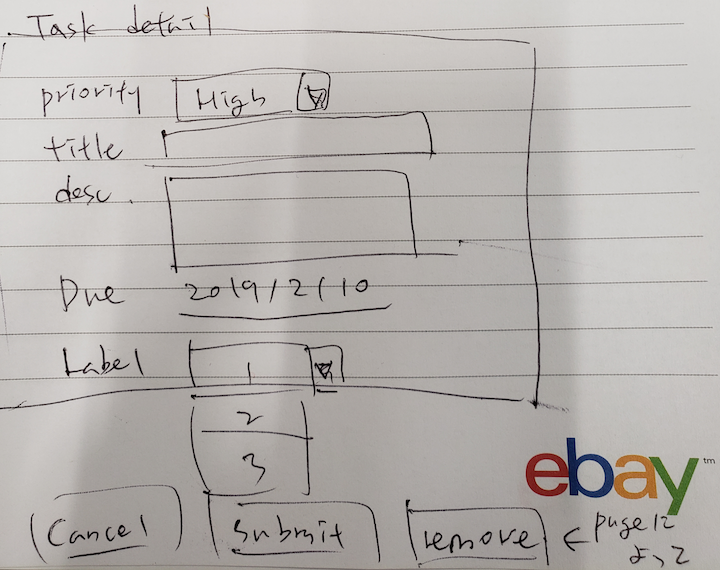 Task detail
priority High
title
desc.
Due 2019/2/10
Label 1
2
3
ebay™
Cancel Submit remove ← page 12
よって